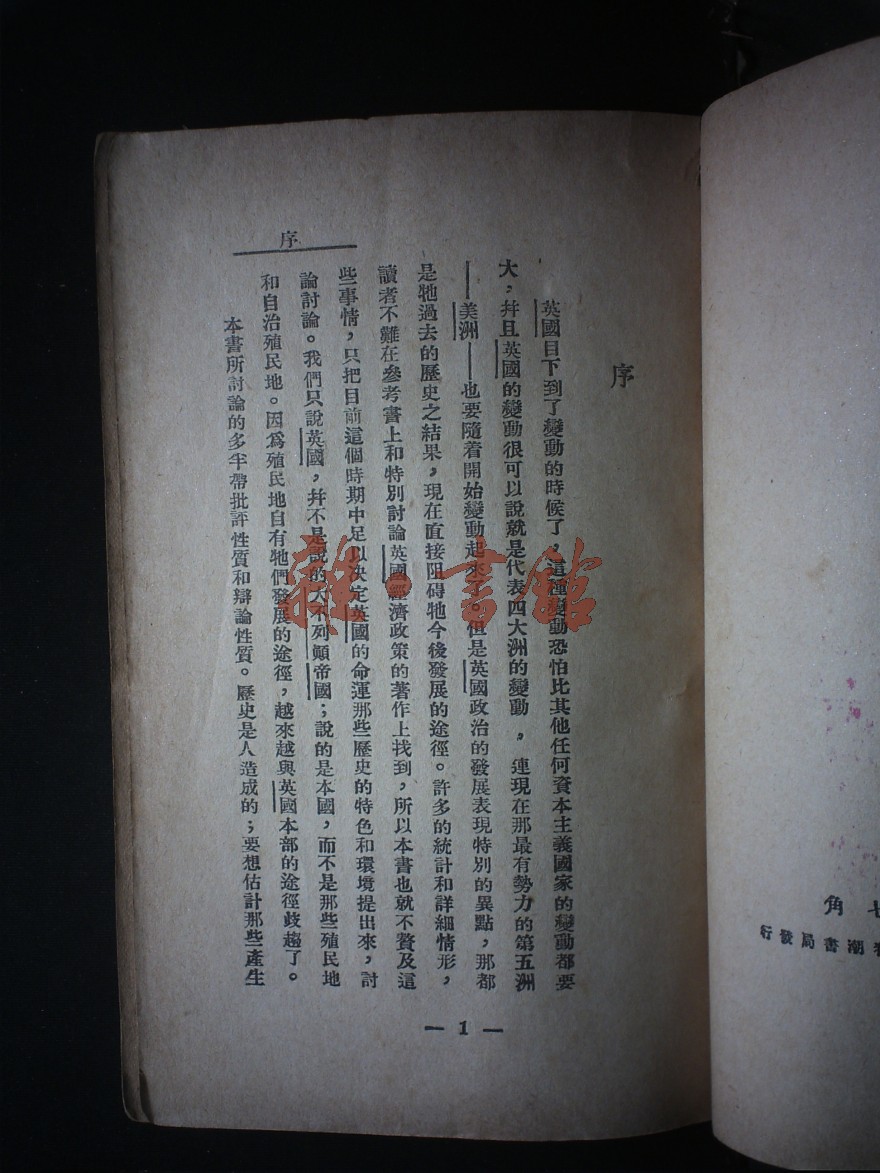 序
序
英國目下到了變動的時候了，這種變動恐怕比其他任何資本主義國家的變動都要
大，幷且英國的變動很可以說就是代表四大洲的變動，連現在那最有勢力的第五洲
——美洲——也要隨着開始變動起來了。但是英國政治的發展表現特別的異點，那都
是牠過去的歷史之結果，現在直接阻碍牠今後發展的途徑。許多的統計和詳細情形，
讀者不難在參考書上和特別討論英國經濟政策的著作上找到，所以本書也就不贅及這
些事情，只把目前這個時期中足以決定英國的命運那些歷史的特色和環境提出來，討
論討論。我們只說英國，幷不是說的大不列顛帝國；說的是本國，而不是那些殖民地
和自治殖民地。因爲殖民地自有牠們發展的途徑，越來越與英國本部的途徑歧趨了。
本書所討論的多半帶批評性質和辯論性質。歷史是人造成的；要想估計那些產生
— 1 —
角
潮書局發行
雜·書館